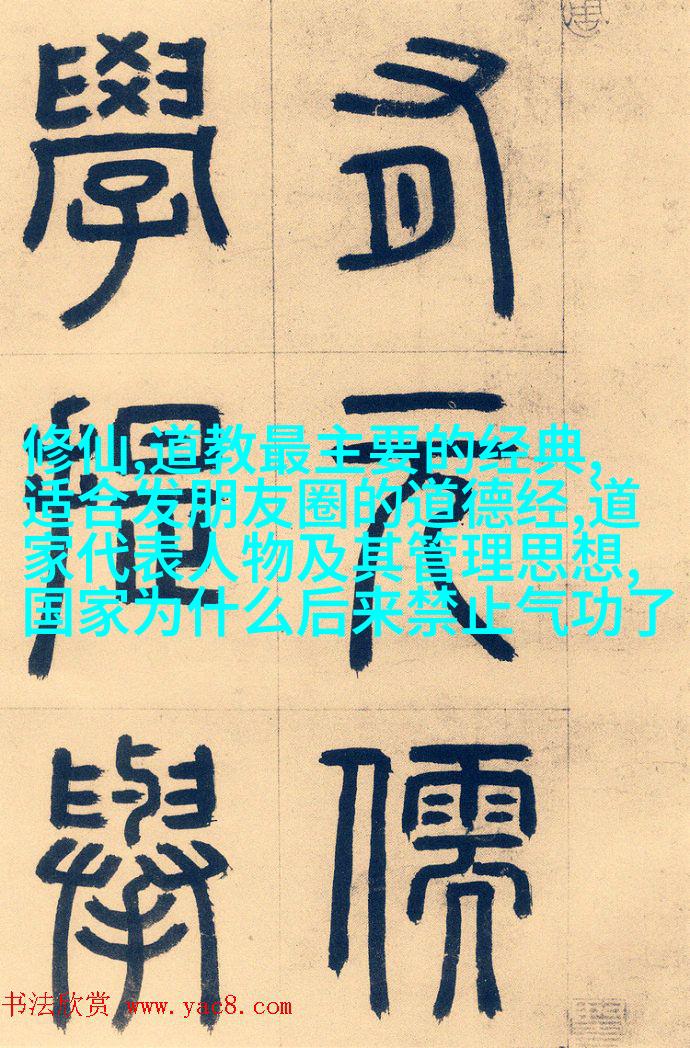 有元儒
學提舉
修仙,道教最主要的经典,
适合发朋友圈的道德经,道
家代表人物及其管理思想,
国家为什么后来禁止气功了
书法欣赏 www.yac8.com